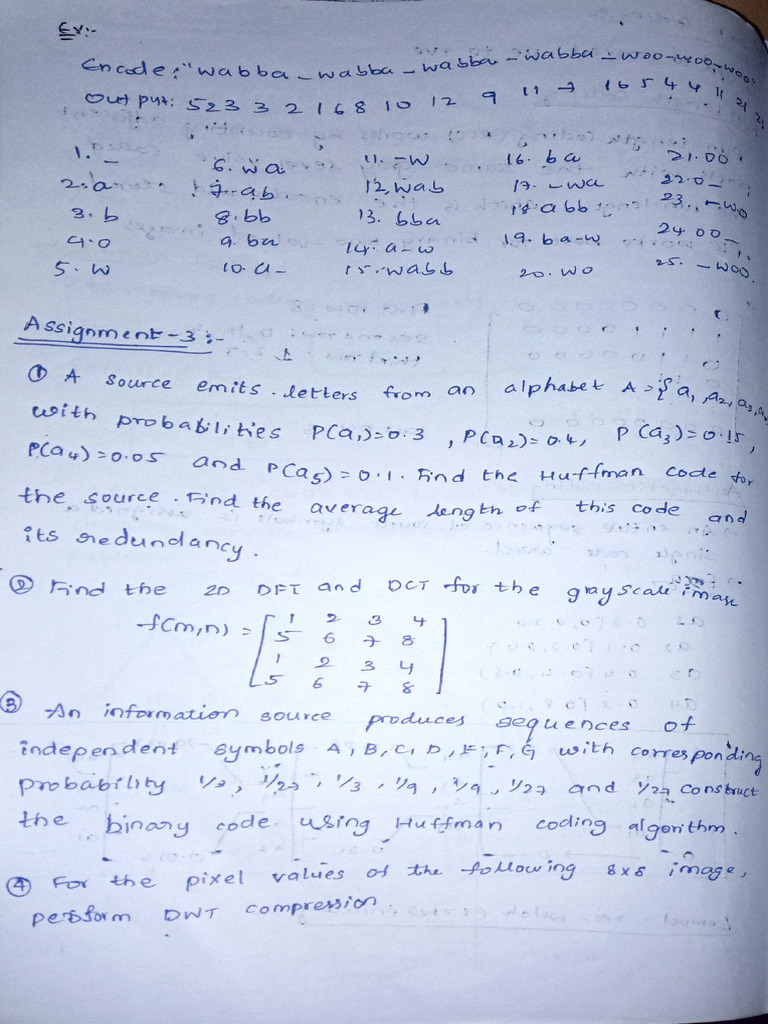 Ex:-
Encode: "wabba-wabba-wabba-wabba-woo-woo-woo.
Output: 5 2 3 3 2 1 6 8 10 12 9 11 7 16 5 4 4 11 21
1. - 6. wa 11. -w 16. ba 21. 00
2. a 7. ab 12. wab 17. -wa 22. 0-
3. b 8. bb 13. bba 18 abb 23. -wo
4. 0 9. ba 14. a-w 19. ba-w 24 00-
5. w 10. a- 15. wabb 20. wo 25. -woo.
Assignment-3:-
① A source emits letters from an alphabet A = { a1, a2, a3,
with probabilities P(a1)=0.3, P(a2)=0.4, P(a3)=0.15,
P(a4)=0.05 and P(a5)=0.1. Find the Huffman code for
the source. Find the average length of this code and
its redundancy.
② Find the 2D DFT and DCT for the grayscale image
f(m,n) = [ 1 2 3 4
5 6 7 8
1 2 3 4
5 6 7 8 ]
③ An information source produces sequences of
independent symbols A, B, C, D, E, F, G with corresponding
probability 1/27, 1/3, 1/9, 1/27 and 1/27 construct
the binary code using Huffman coding algorithm.
④ For the pixel values of the following 8x8 image,
perform DWT compression.